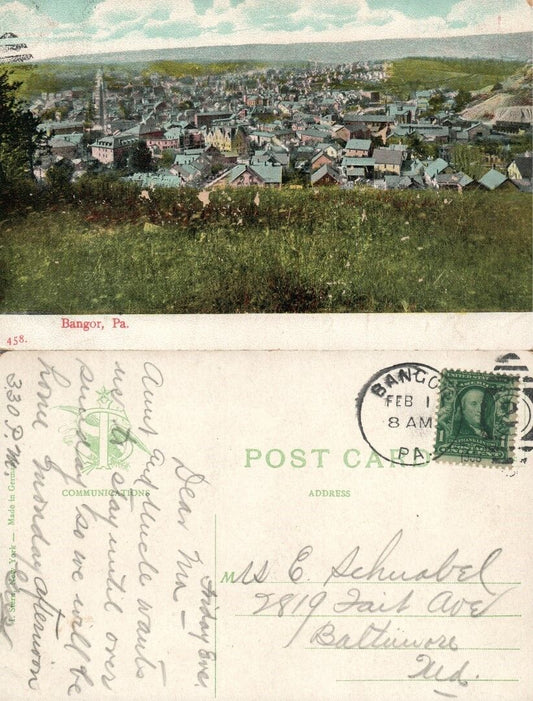 Bangor, Pa.
458.
BANGOR
FEB 1
8 AM
PA.
UNITED STATES
POST CARD
COMMUNICATIONS
ADDRESS
New York — Made in Ger
Friday Eve.
Dear Ma —
Aunt and Uncle wants
us to stay until over
sunday so we will be
home monday afternoon
330 P.M.
Mrs E. Schnabel
2819 Fait Ave
Baltimore
Md.